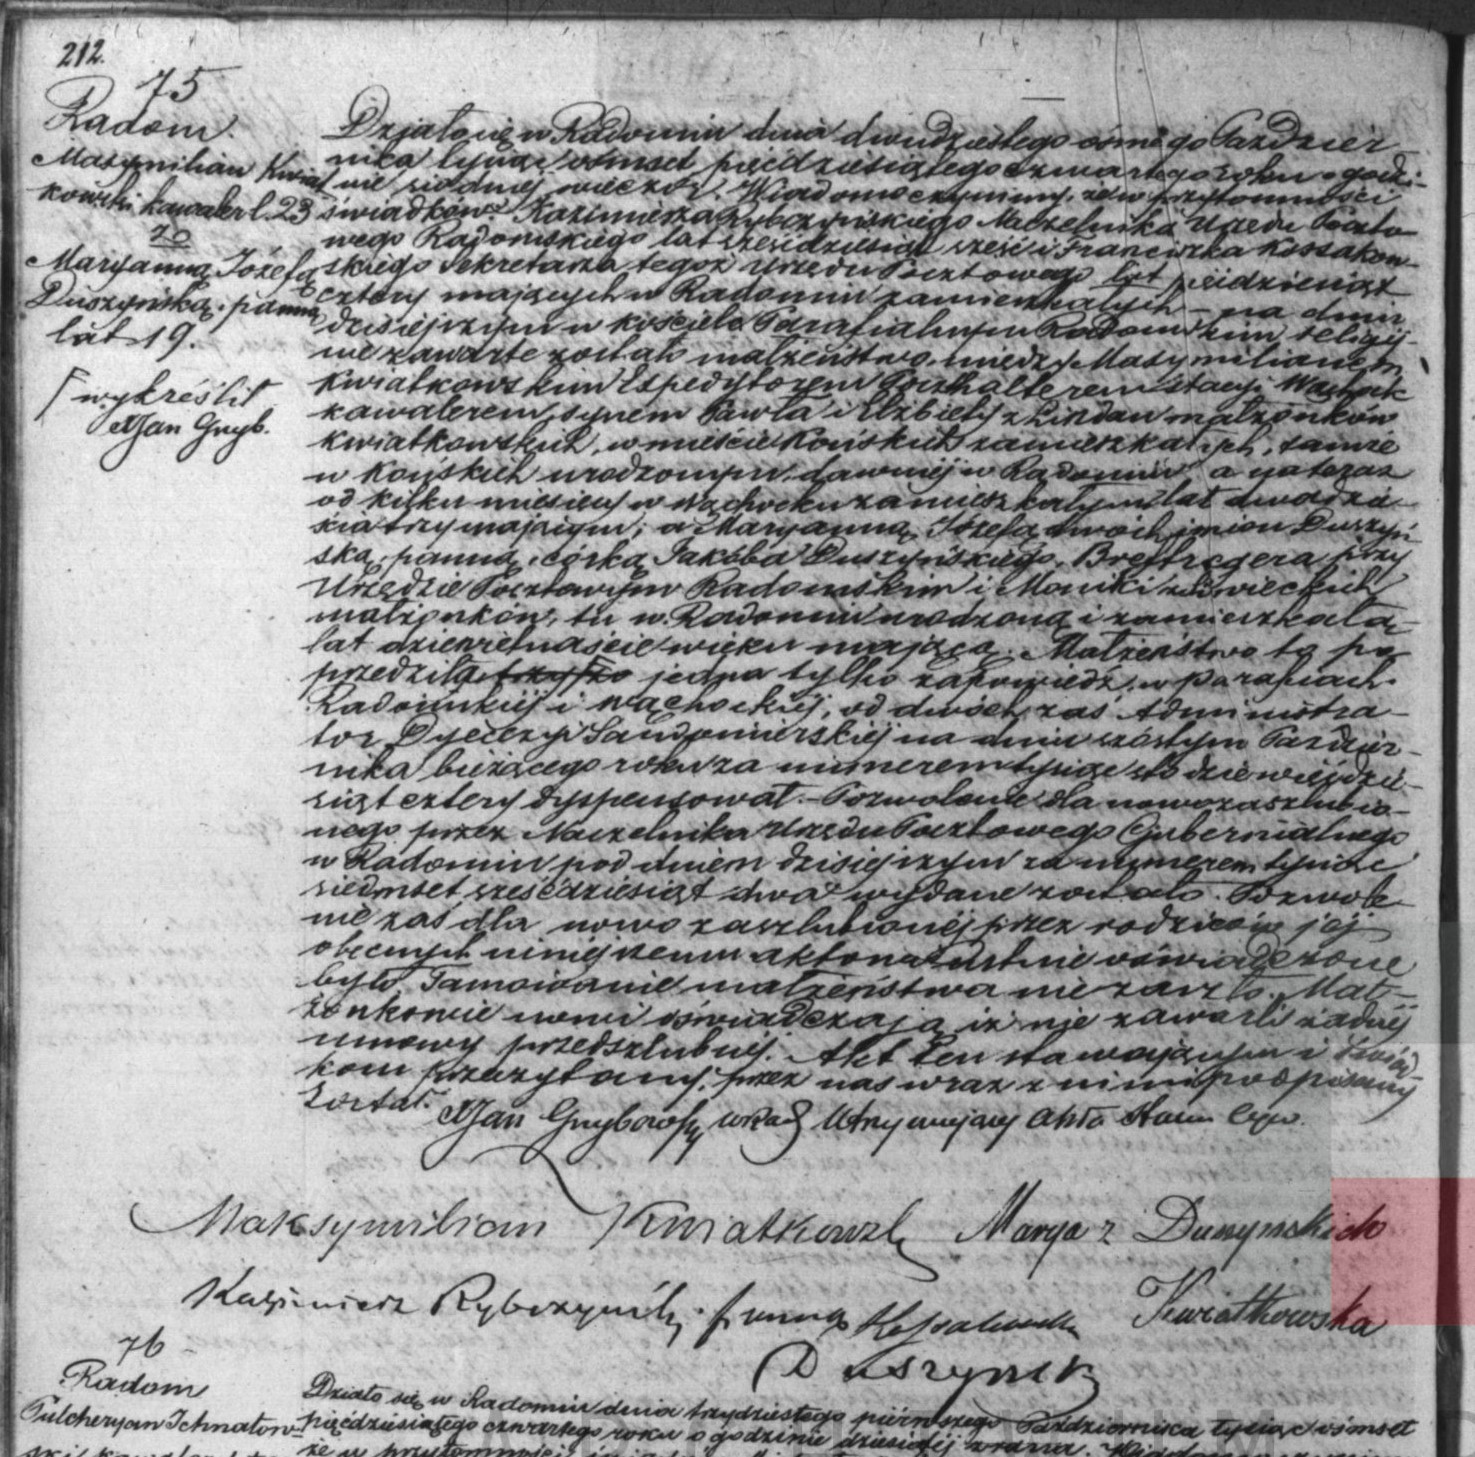 212.
75
Radom.
Maxymilian Kwiat
kowski kawaler l. 23
zo
Maryanną Józefą
Duszyńską, panną
lat 19.
wykreślił
XJan Gryb.
Działo się w Radomiu dnia dwudziestego ósmego Paździer-
nika tysiąc ośmset pięćdziesiątego czwartego roku o godzi-
nie siódmej wieczór. Wiadomo czynimy, że w przytomności
świadków Kazimierza Rybczyńskiego Naczelnika Urzędu Poczto-
wego Radomskiego lat sześćdziesiąt sześć i Franciszka Kossakow-
skiego Sekretarza tegoż Urzędu Pocztowego lat pięćdziesiąt
cztery mających w Radomiu zamieszkałych – na dniu
dzisiejszym w kościele Parafialnym Radomskim religij-
nie zawarte zostało małżeństwo, między Maxymilianem
Kwiatkowskim Expedytorem Poczhalterem stacyi Wąchock
kawalerem, synem Pawła i Elżbiety z Lindau małżonków
Kwiatkowskich, w mieście Końskich zamieszkałych, tamże
w Końskich urodzonym, dawniej w Radomiu a na teraz
od kilku miesięcy w Wąchocku zamieszkałym lat dwadzie-
ścia trzy mającym; a Maryanną Józefą dwóch imion Duszyń-
ską, panną, córką Jakóba Duszyńskiego, Breftregera przy
Urzędzie Pocztowym Radomskim i Moniki
małżonków, tu w Radomiu urodzoną i zamieszkałą
lat dziewietnaście wieku mającą. Małżeństwo to po-
przedziła jedna tylko zapowiedź, w parafiach
Radomskiej i Wąchockiej, od dwóch zaś Administra-
tor Dyecezyi Sandomierskiej na dniu szóstym Paździer-
nika bieżącego roku za numerem tysiąc sto dziewięćdzie-
siąt cztery dyspensował. – Pozwolenie dla nowozaszlubio-
nego przez Naczelnika Urzędu Pocztowego Gubernialnego
w Radomiu pod dniem dzisiejszym za numerem tysiąc
siedmset sześćdziesiąt dwa wydane zostało. Pozwole-
nie zaś dla nowo zaszlubionej przez rodziców jej
obecnych niniejszemu aktowi ustnie oświadczone
było. Tamowanie małżeństwa nie zaszło. Mał-
żonkowie nowi oświadczają iż nie zawarli żadnej
umowy przedszlubnej. Akt ten stawającym i świad-
kom przeczytany, przez nas wraz z nimi podpisany
został.
XJan Grybowski Utrzymujący Akta Stanu Cyw.
Maksymilian Kwiatkowski Marya z Duszyńskich
Kwiatkowska
Kazimierz Rybczyński. Franc Kossakowski
Duszyński
76
Radom
Pulcheryan Ichnatow-
Działo się w Radomiu dnia trzydziestego pierwszego Października tysiąc ośmset
pięćdziesiątego czwartego roku o godzinie dziesiątej zrana.
że w przytomności